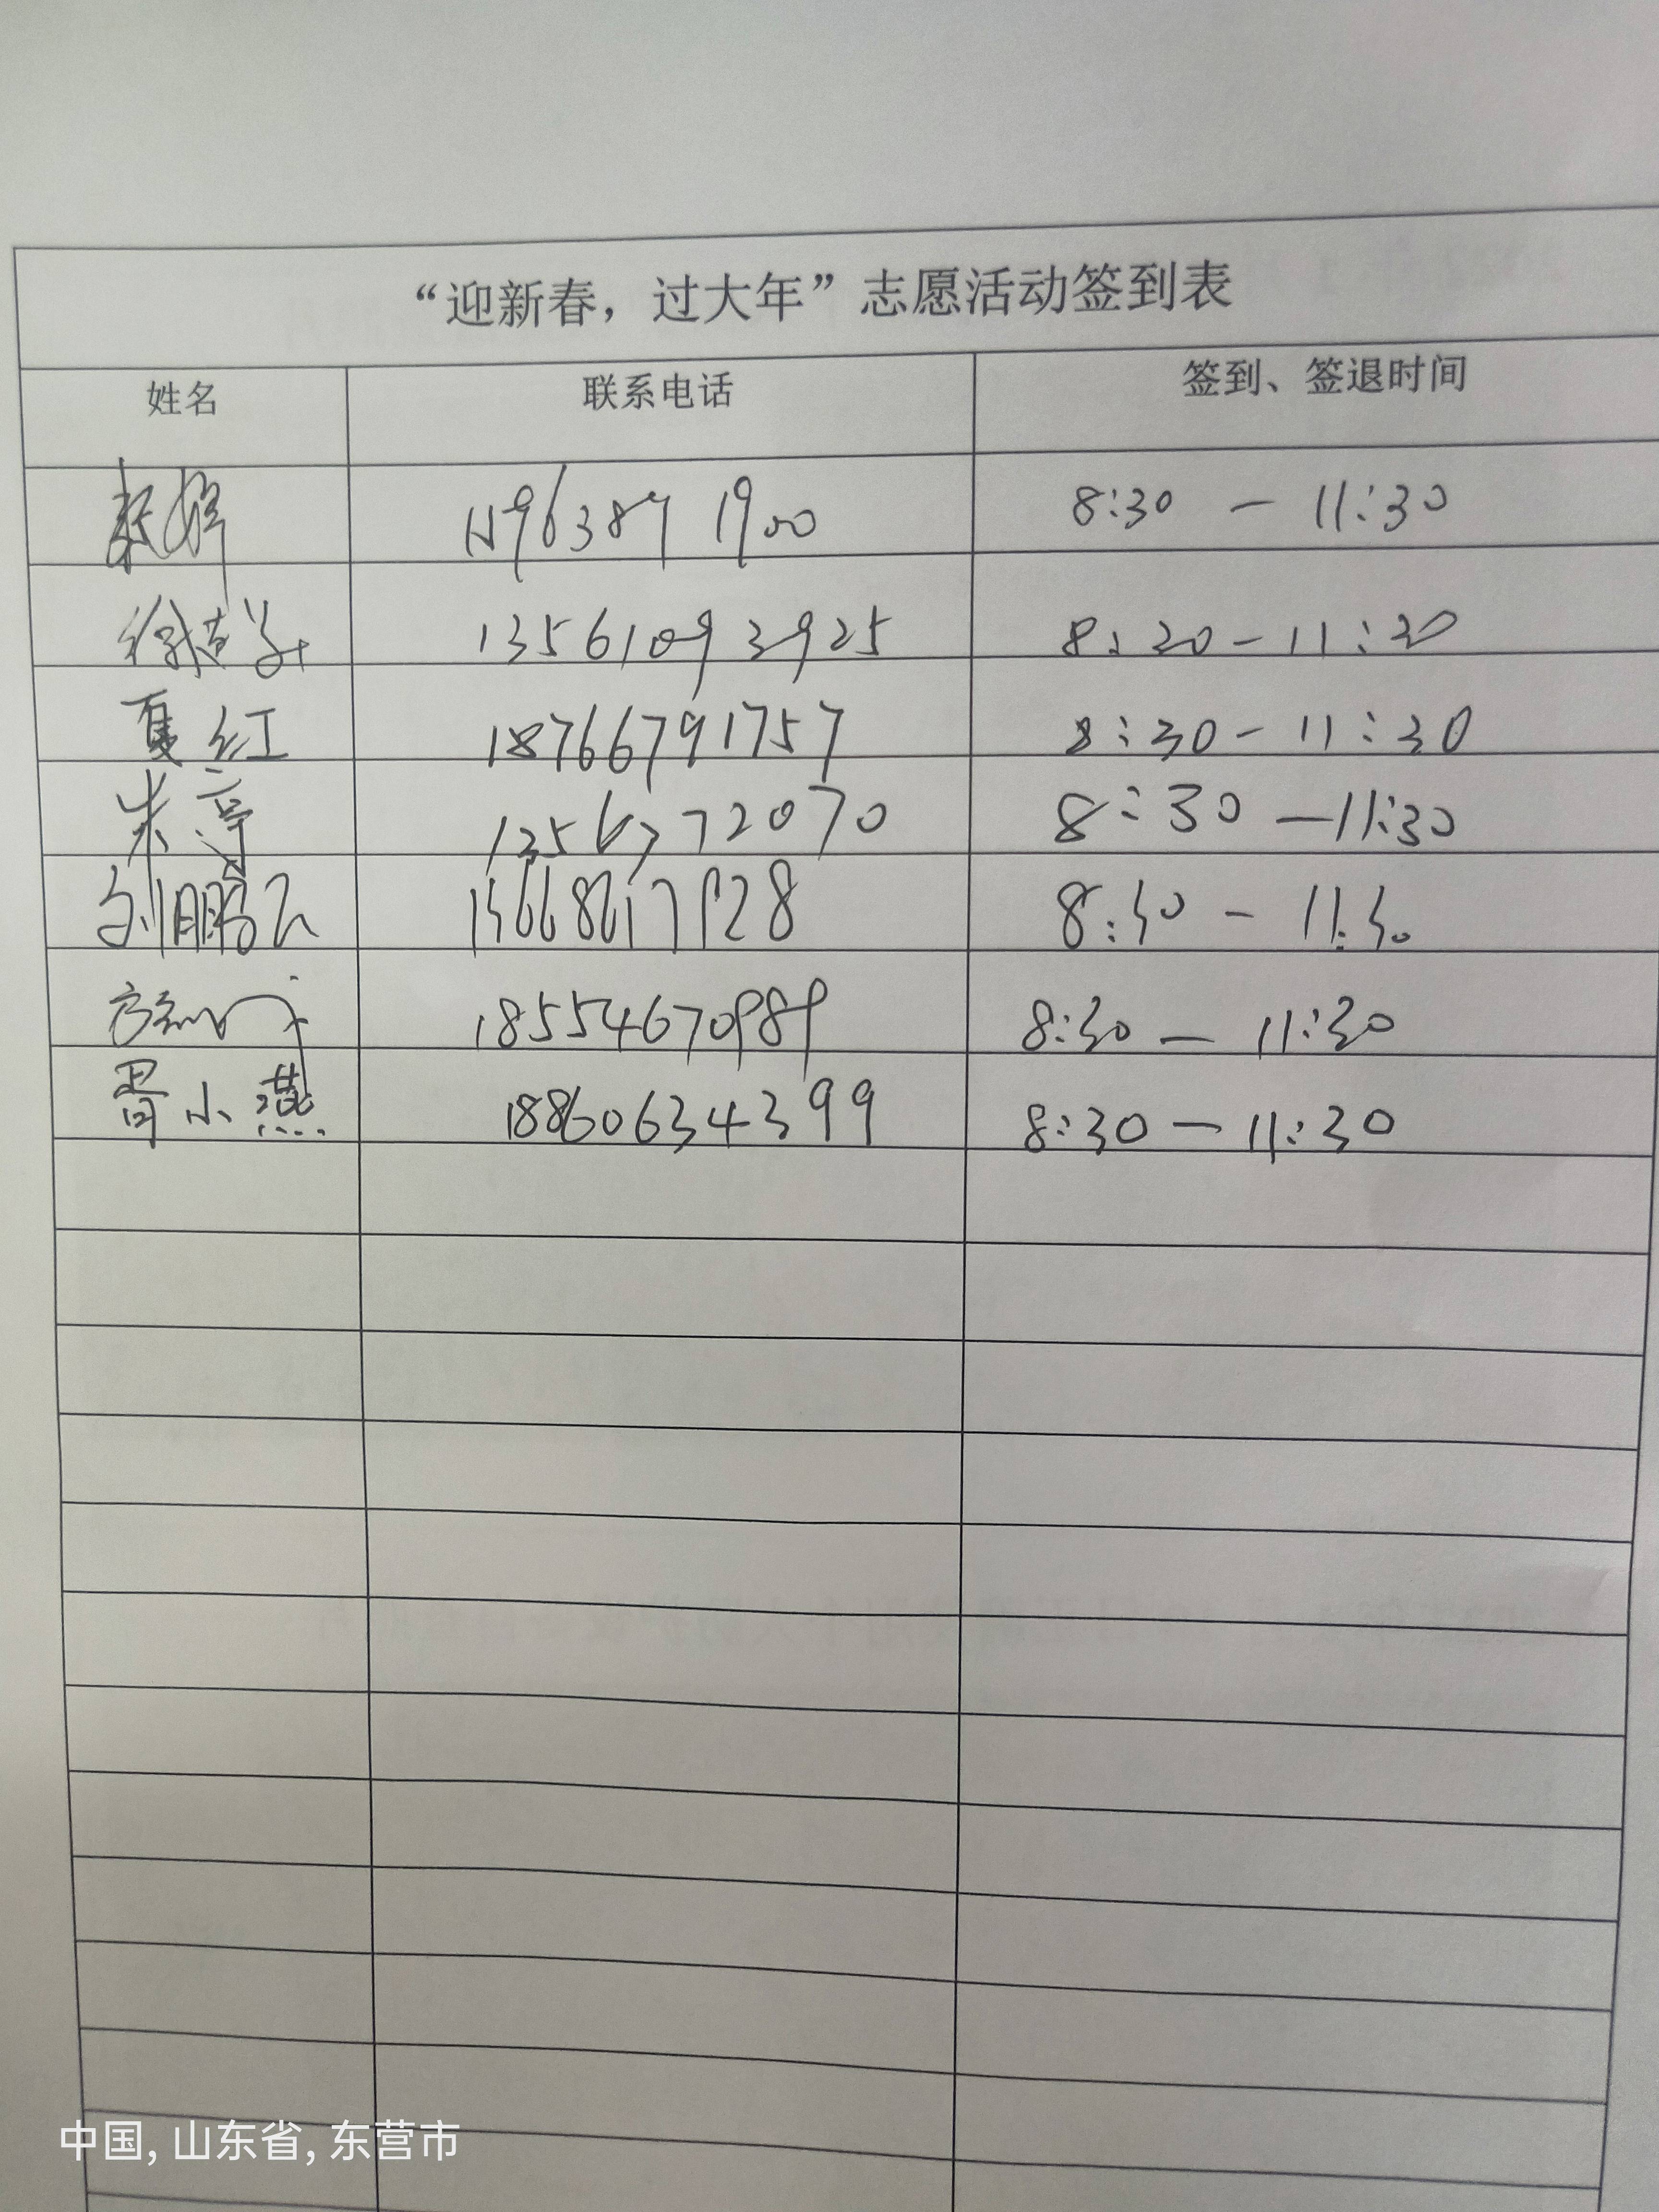 “迎新春，过大年”志愿活动签到表
姓名 联系电话 签到、签退时间
8:30 — 11:30
13561093925 8:30-11:30
夏红 18766791757 8:30-11:30
朱 8:30 —11:30
刘鹏飞 8:30 - 11:30
18554670989 8:30 — 11:30
胥小燕 18860634399 8:30 — 11:30
中国, 山东省, 东营市